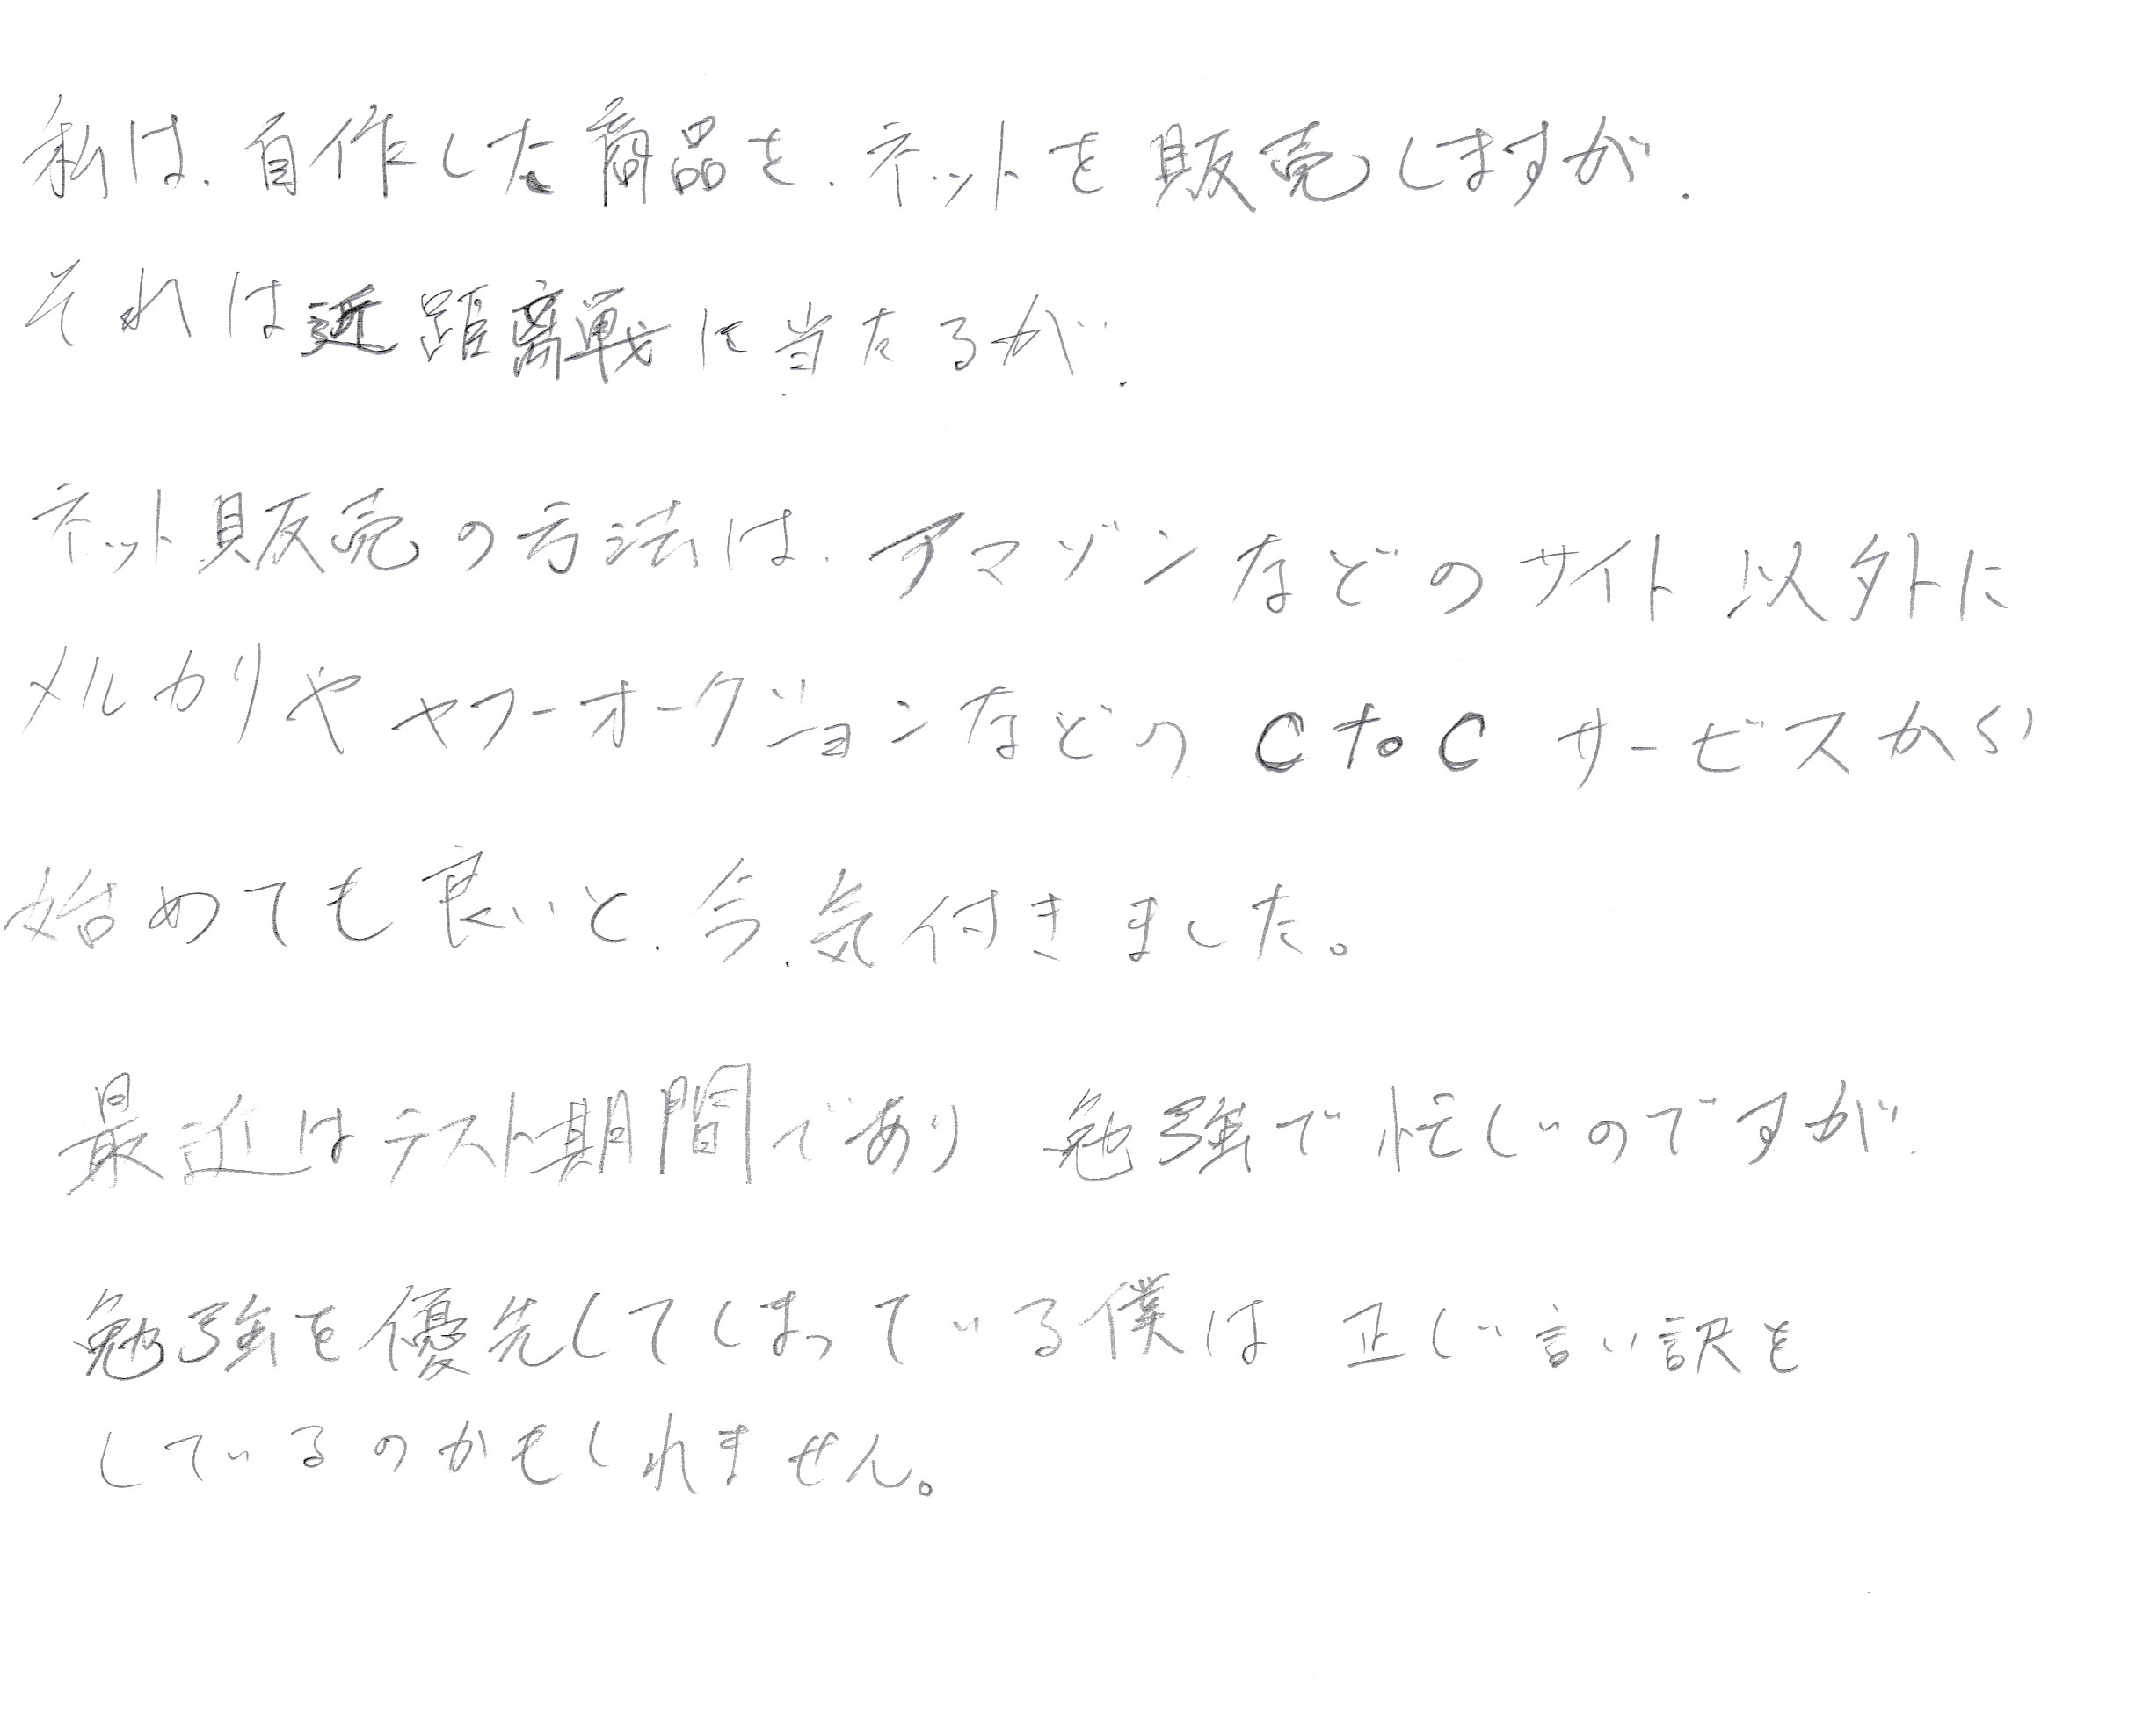 私は、自作した商品を、ネットを販売しますが、
それは近距離戦に当たるが、
ネット販売の方法は、アマゾンなどのサイト以外に
メルカリやヤフーオークションなどの CtoC サービスから
始めても良いと、今、気付きました。
最近はテスト期間であり 勉強で忙しいのですが、
勉強を優先してしまっている僕は 正しい言い訳を
しているのかもしれません。